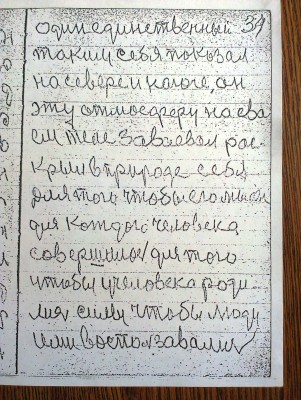 один единственный 34
таким себя показал
на севере и юге, он
эту атмосферу на сва
ем теле завоевал рас
крыл в природе себя,
для того чтобы его мысл
для каждого человека
совершилось для того
чтобы у человека роди
лись силы чтобы люди
ими воспользавались